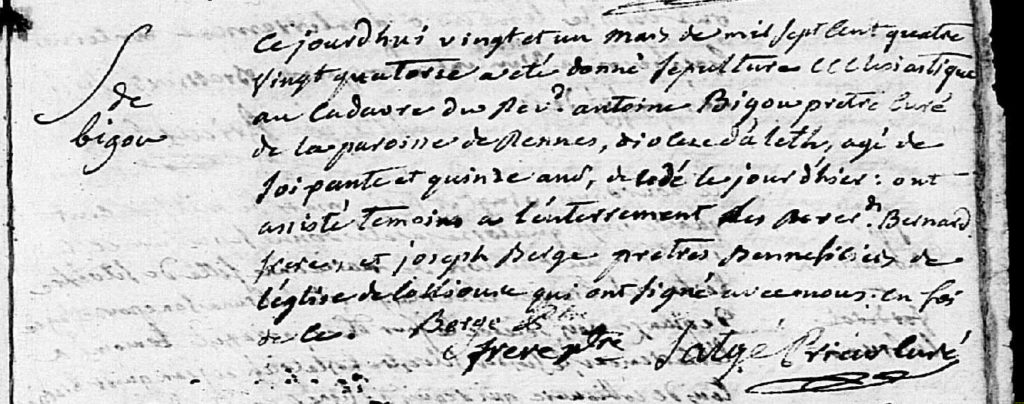 S
de
bigou
Ce jourdhui vingt et un mars de mil sept Cent quatre
vingt quatorse a eté donné sepulture Ecclesiastique
au Cadavre du Rev.d antoine Bigou pretre Curé
de la paroisse de Rennes, diocese d'aleth, agé de
soipante et quinze ans, decedé le jour d'hier: ont
assisté temoins a l'enterrement les Rever.ds Bernard
frere et joseph Berge pretres Benneficiers de
l'église de Collioure qui ont signé avec nous. en foi
de Ce. Berge ptre
frere ptre Satgé Prieur Curé